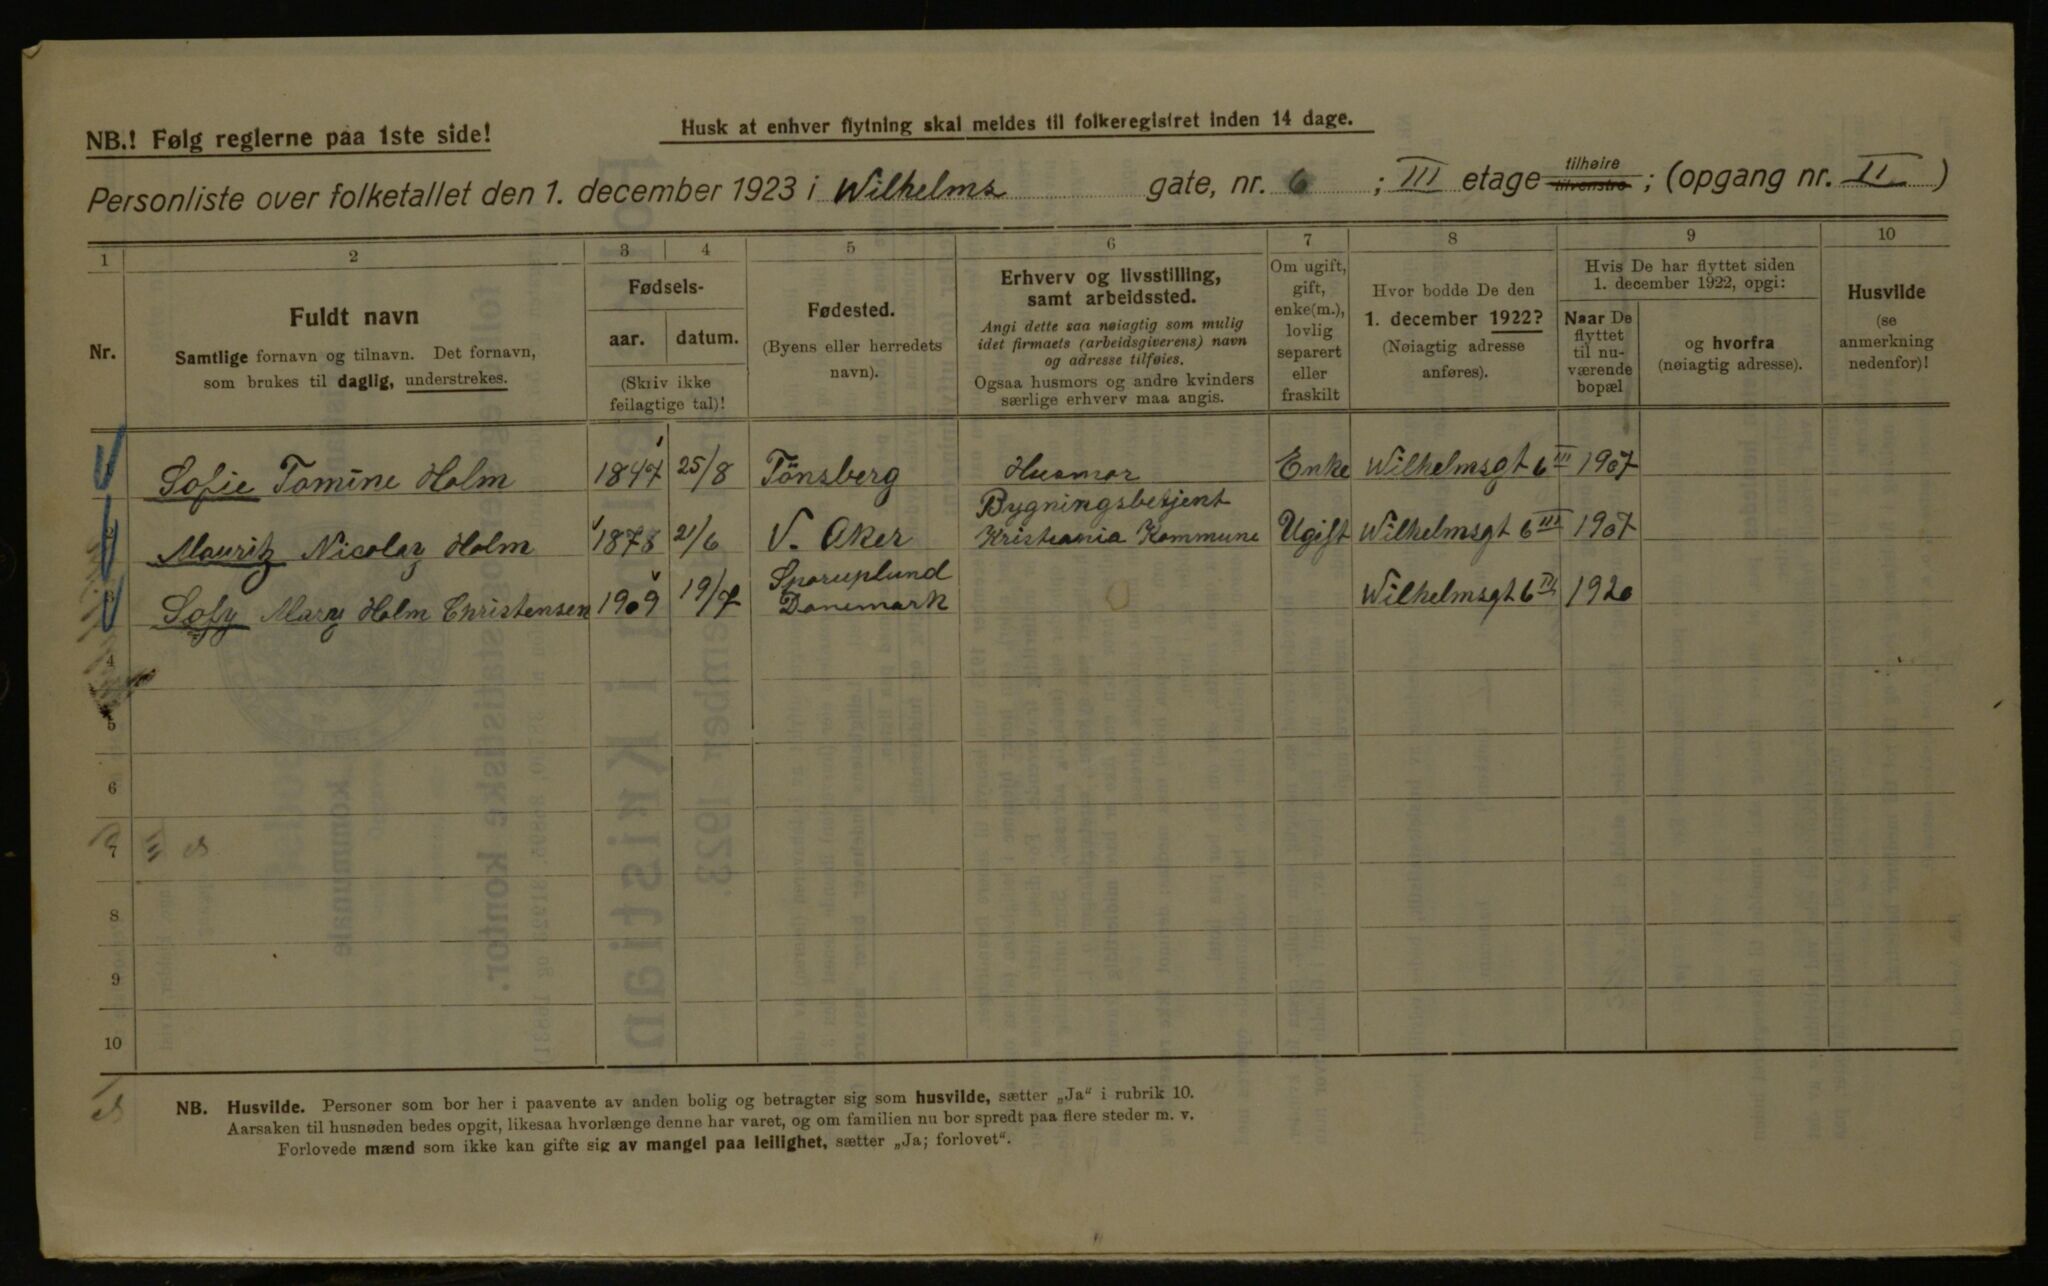 NB.! Følg reglerne paa 1ste side!
Husk at enhver flytning skal meldes til folkeregistret inden 14 dage.
Personliste over folketallet den 1. december 1923 i Wilhelms gate, nr. 6 ; III etage tilhøire tilvenstre ; (opgang nr. II )
1 2 3 4 5 6 7 8 9 10
Nr.
Fuldt navn
Samtlige fornavn og tilnavn. Det fornavn,
som brukes til daglig, understrekes.
Fødsels-
aar. datum.
(Skriv ikke
feilagtige tal)!
Fødested.
(Byens eller herredets
navn).
Erhverv og livsstilling,
samt arbeidssted.
Angi dette saa nøiagtig som mulig
idet firmaets (arbeidsgiverens) navn
og adresse tilføies.
Ogsaa husmors og andre kvinders
særlige erhverv maa angis.
Om ugift,
gift,
enke(m.),
lovlig
separert
eller
fraskilt
Hvor bodde De den
1. december 1922?
(Nøiagtig adresse
anføres).
Hvis De har flyttet siden
1. december 1922, opgi:
Naar De
flyttet
til nu-
værende
bopæl
og hvorfra
(nøiagtig adresse).
Husvilde
(se
anmerkning
nedenfor)!
Sofie Tomine Holm 1847 25/8 Tönsberg Husmor Enke Wilhelmsgt 6 III 1907
2 Mauritz Nicolay Holm 1878 21/6 V. Aker Bygningsbetjent Kristiania Kommune Ugift Wilhelmsgt 6 III 1907
3 Sofy Mary Holm Christensen 1909 19/7 Sporuplund Danemark Wilhelmsgt 6 III 1920
4
5
6
7
8
9
10
NB. Husvilde. Personer som bor her i paavente av anden bolig og betragter sig som husvilde, sætter „Ja“ i rubrik 10.
Aarsaken til husnøden bedes opgit, likesaa hvorlænge denne har varet, og om familien nu bor spredt paa flere steder m. v.
Forlovede mænd som ikke kan gifte sig av mangel paa leilighet, sætter „Ja; forlovet“.